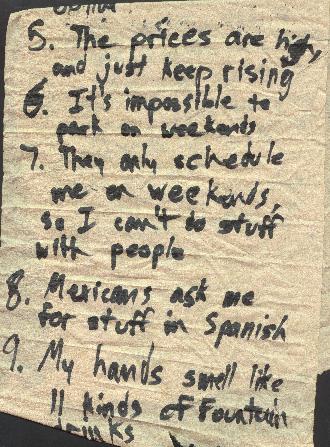 5. The prices are high,
and just keep rising
6. It's impossible to
park on weekends
7. They only schedule
me on weekends,
so I can't do stuff
with people
8. Mexicans ask me
for stuff in Spanish
9. My hands smell like
11 kinds of Fountain
drinks